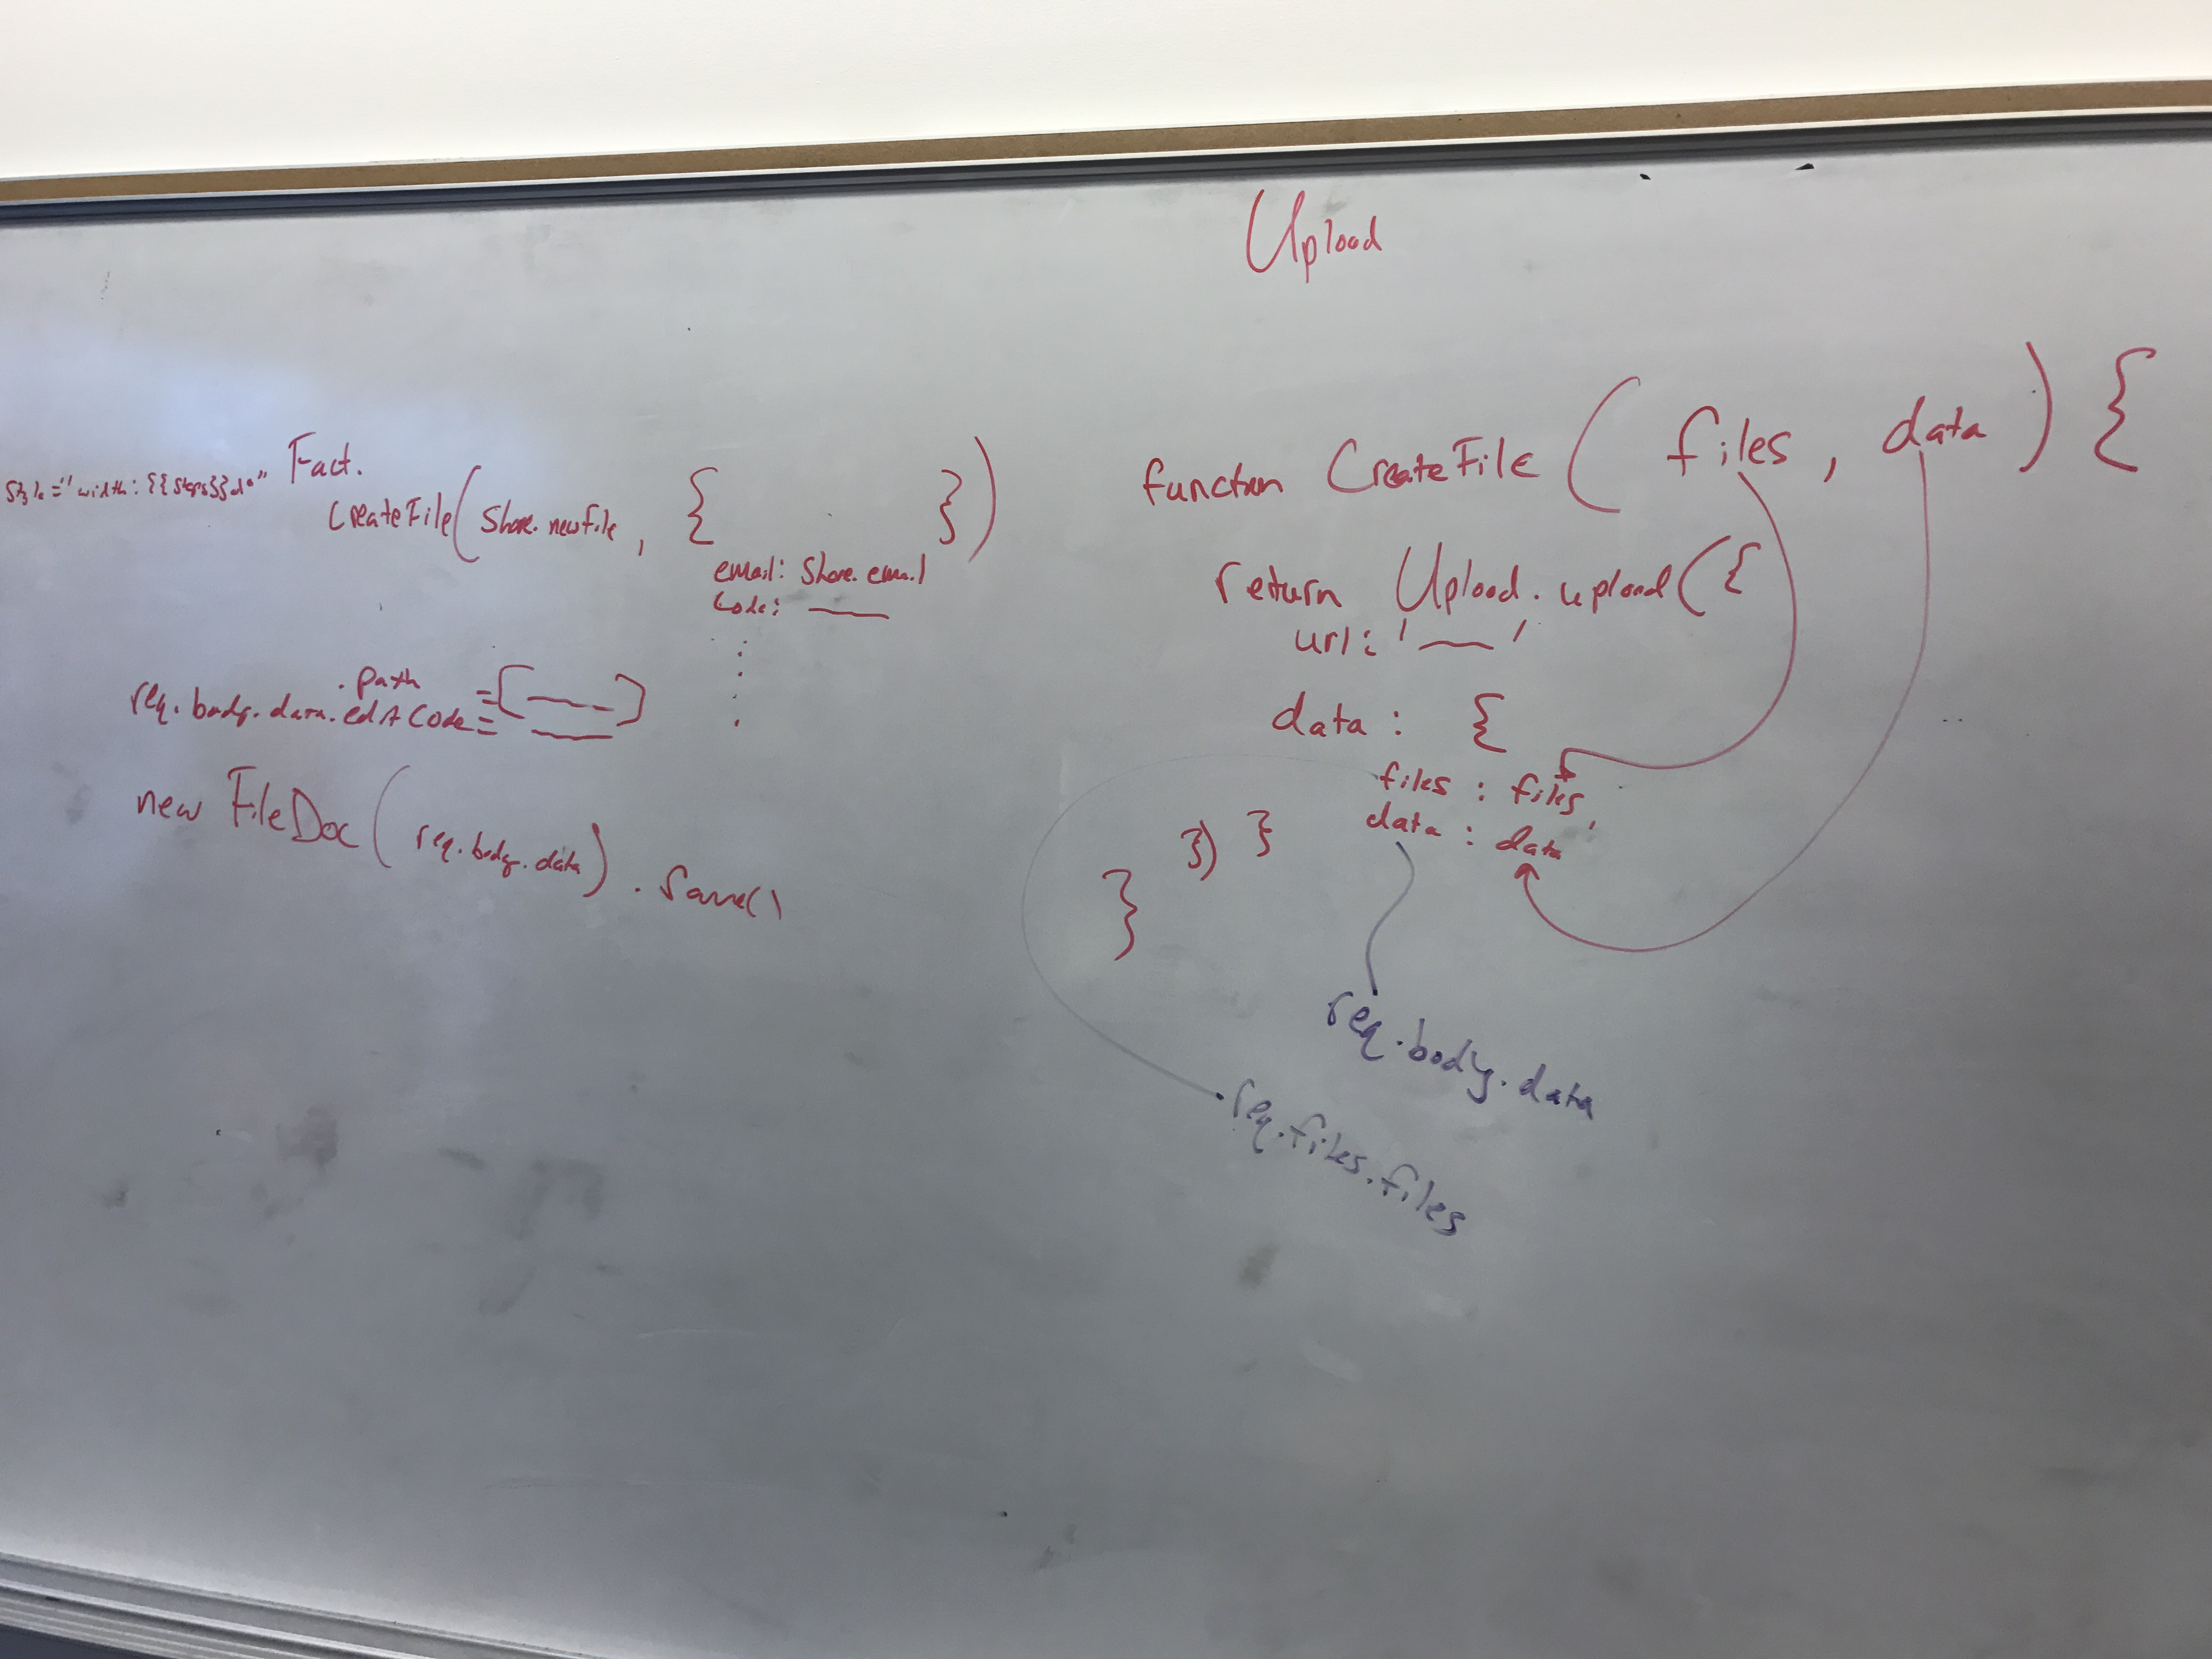 Upload
Fact.
CreateFile(Share.newFile, { })
email: Share.email
Code: ____
req.body.data.editCode = ____
.path = [____]
new FileDoc(req.body.data).save()
function CreateFile(files, data) {
return Upload.upload({
url: '____'
data: {
files: files,
data: data
}
})
}
req.body.data
req.files.files